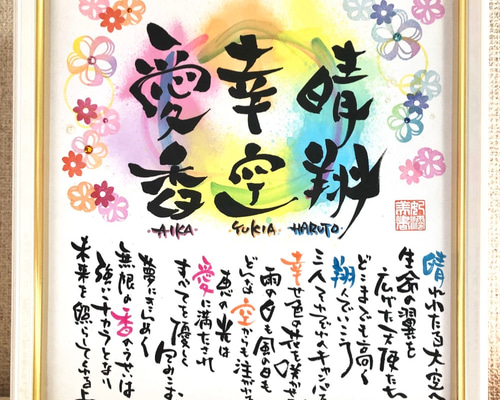 晴翔
幸空
愛香
HARUTO
YUKIA
AIKA
晴れわたる大空へ
生命の翼を
広げた天使たち
どこまでも高く
翔んでいこう
三人で
幸せ色の花を咲かせ
雨の日も風の日も
どんな空からも注がれ
恵の光は
愛に満たされ
すべてを優しく
夢にきらめく
無限の香のうせいは
強いチカラとなり
未来を照らして